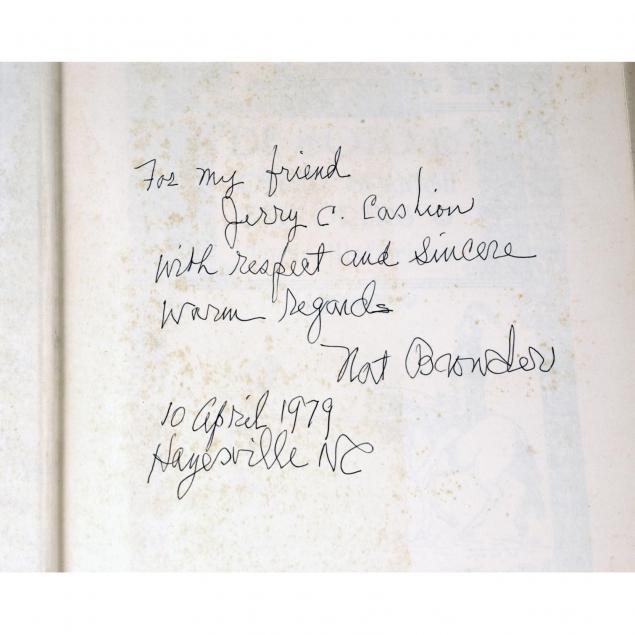 For my friend
Jerry C. Cashion
with respect and sincere
warm regards
Nat Browder
10 April 1979
Hayesville NC